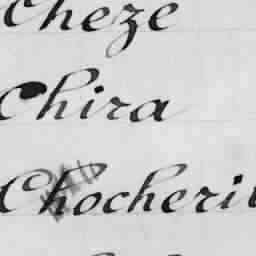 Cheze
Chira
Chocheri